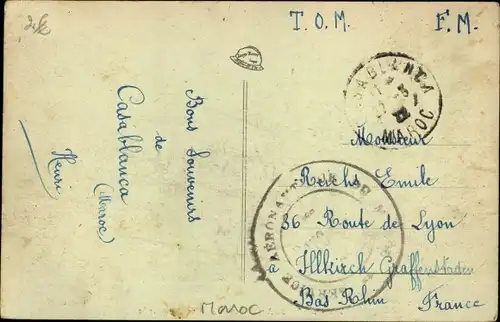 T.O.M. F.M.
Bons Souvenirs
de
Casablanca
(Maroc)
Henri
CASABLANCA
MAROC
Monsieur
Reichs Emile
36 Route de Lyon
à Illkirch Graffenstaden
Bas Rhin France
Maroc